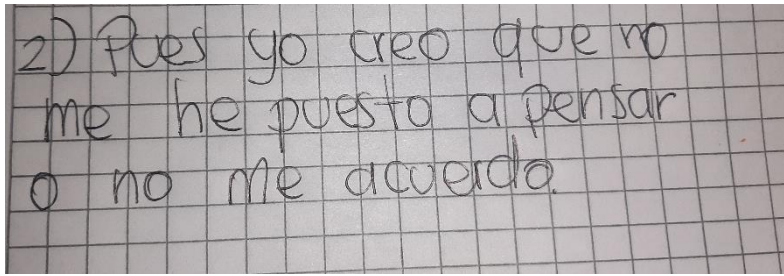 2) Pues yo creo que no
me he puesto a pensar
o no me acuerdo.